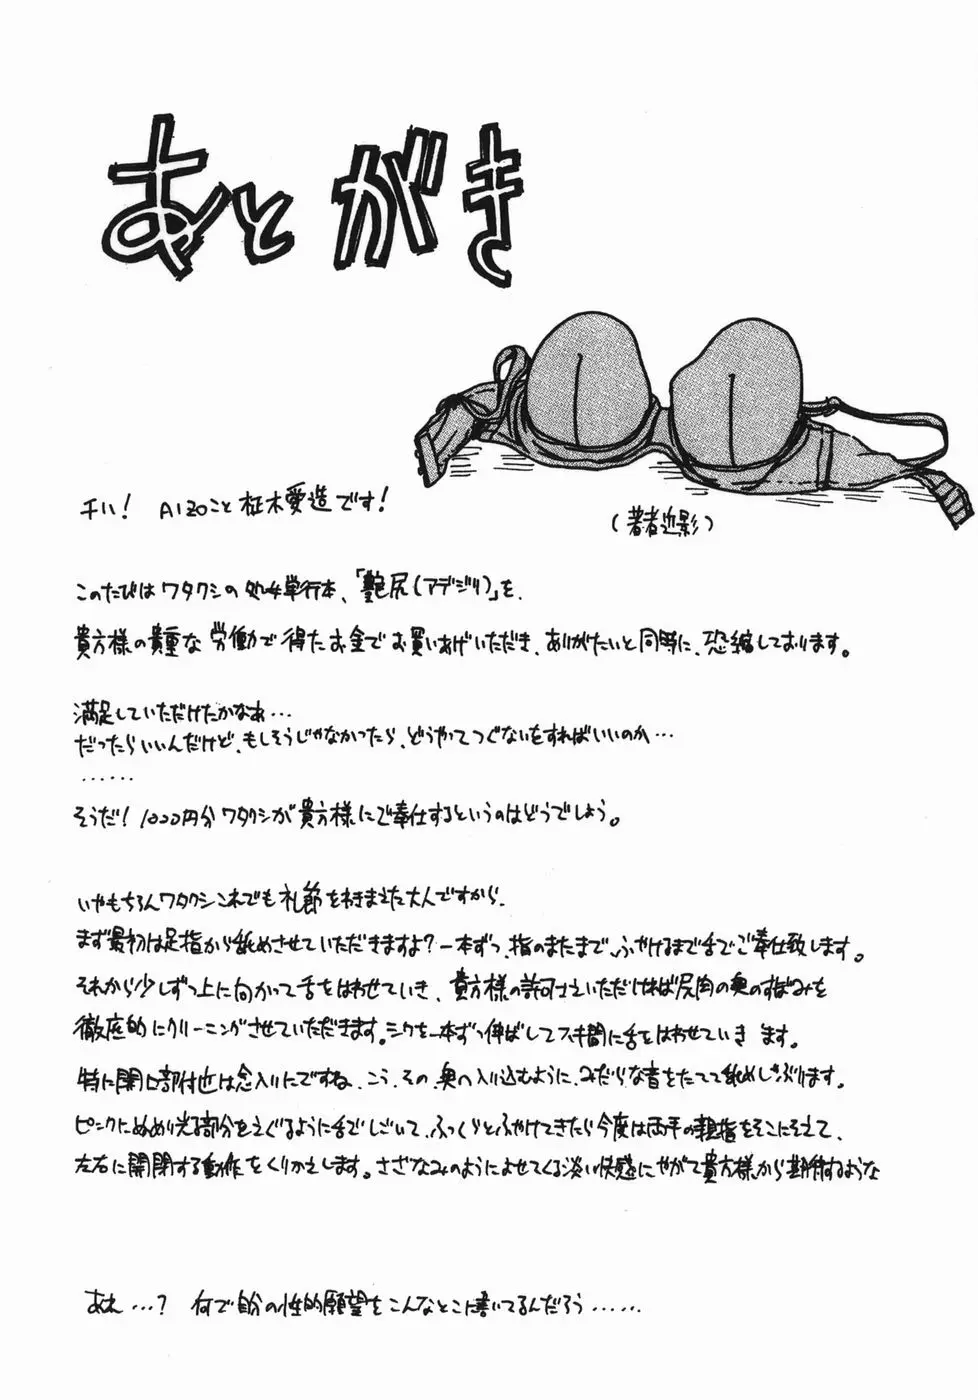 あとがき
チハ! AIZOこと柾木愛造です!
(著者近影)
このたびはワタクシの処女単行本、「艶尻(アデジリ)」を、
貴方様の貴重な労働で得たお金でお買いあげいただき、ありがたいと同時に、恐縮しております。
満足していただけたかなぁ…
だったらいいんだけど、もしそうじゃなかったら、どうやってつぐないをすればいいのか…
……
そうだ! 1000円分ワタクシが貴方様にご奉仕するというのはどうでしよう。
いやもちろんワタクシこれでも礼節をわきまえた大人ですから、
まず最初は足指から舐めさせていただきますよ?一本ずつ、指のまたまで、ふやけるまで舌でご奉仕致します。
それから少しずつ上に向かって舌をはわせていき、貴方様の許可さえいただければ尻肉の奥のすぼみを
徹底的にクリーニングさせていただきます。シワを一本ずつ伸ばしてスキ間に舌をはわせていきます。
特に開口部付近は念入りにですね、こう、その奥へ入り込むように、みだらな音をたてて舐めしゃぶります。
ピンクにぬめり光る部分をえぐるように舌でしごいて、ふっくらとふやけてきたら今度は両手の親指をそこにそえて、
左右に開閉する動作をくりかえします。さざなみのようによせてくる淡い快感にやがて貴方様から期待するような
あれ…? 何で自分の性的願望をこんなとこに書いてるんだろう……